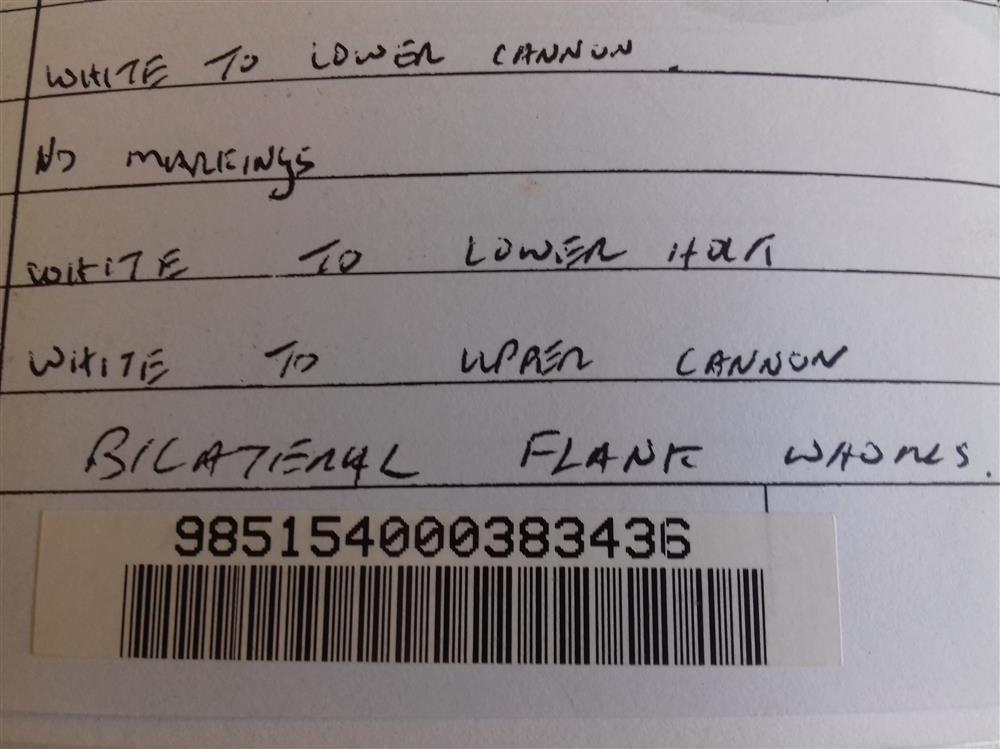 WHITE TO LOWER CANNON.
NO MARKINGS
WHITE TO LOWER HOCK
WHITE TO UPPER CANNON
BILATERAL FLANK WHORLS.
985154000383436